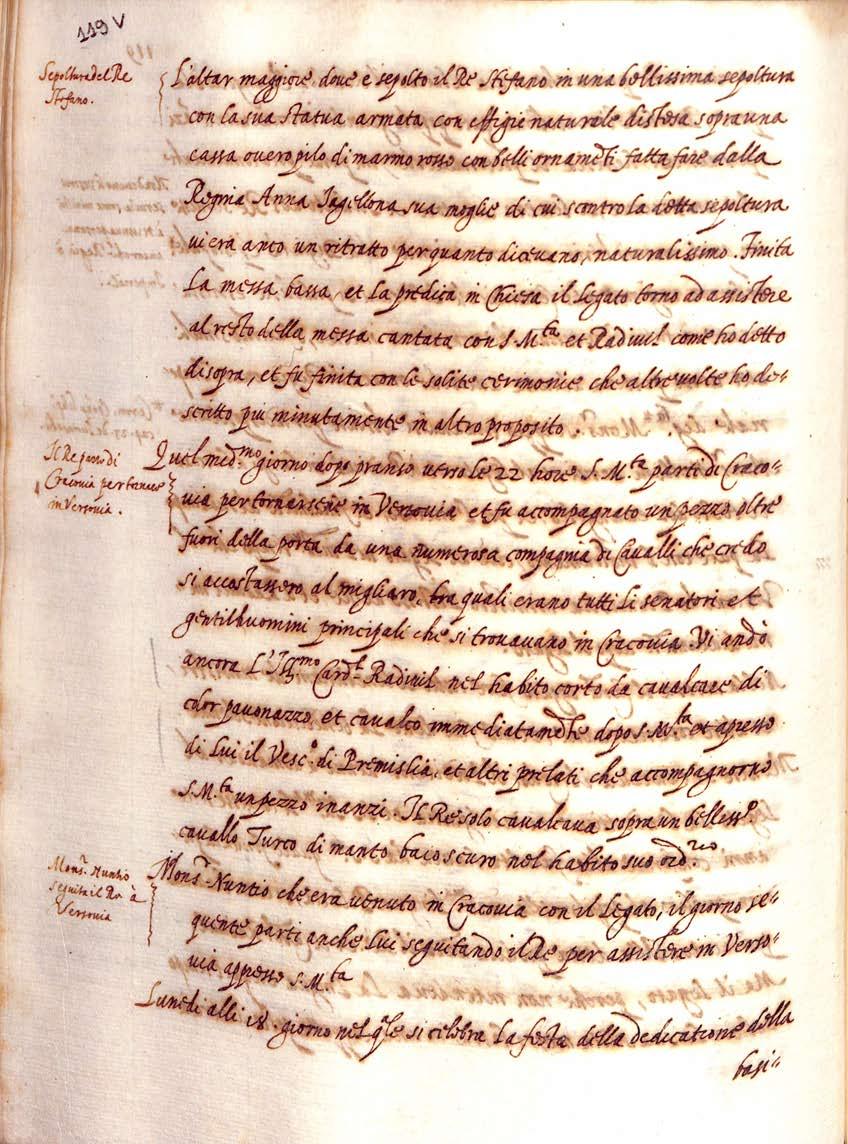 119 V
Sepoltura del Re
Stefano.
L'altar maggiore, dove e sepolto il Re Stefano in una bellissima sepoltura
con la sua statua armata con effigie naturale distesa sopra una
cassa overo pilo di marmo rosso con belli ornamēti fatta fare dalla
Regina Anna Jagellona sua moglie di cui scontro la detta sepoltura
vi era anco un ritratto per quanto dicevano, naturalissimo. Finita
La messa bassa, et la predica in Chiesa il Legato torno ad assistere
al resto della messa cantata con S. M.ta et Radivil come ho detto
disopra, et fu finita con le solite cerimonie che altre volte ho de-
scritto piu minutamente in altro proposito.
Il Re parte di
Cracovia per tornare
in Versovia.
Quel med.mo giorno dopo pranso verso le 22 hore S. M.ta parti di Craco-
via per tornarsene in Versovia et fu accompagnato un pezzo oltre
fuori della porta da una numerosa compagnia di Cavalli che credo
si accostassero al migliaro, tra quali erano tutti li senatori et
gentilhuomini principali che si trovavano in Cracovia. Vi andò
ancora L'Ill.mo Card.l Radivil nel habito corto da cavalcare di
color pavonazzo, et cavalco immediatamēte dopo S. M.ta et apresso
di Lui il Vesc.o di Premislia, et altri prelati che accompagnorno
S. M.ta un pezzo inanzi. Il Re solo cavalcava sopra un belless.o
cavallo Turco di manto baio scuro nel habito suo ord.rio
Mons.r Nuntio
seguita il Re à
Versovia
Mons.r Nuntio che era venuto in Cracovia con il Legato, il giorno se-
quente parti anche Lui seguitando il Re per assistere in Verso-
via appresso S. M.ta
Lunedi alli 18. giorno nel q̃le si celebra La festa della dedicatione della
basi-